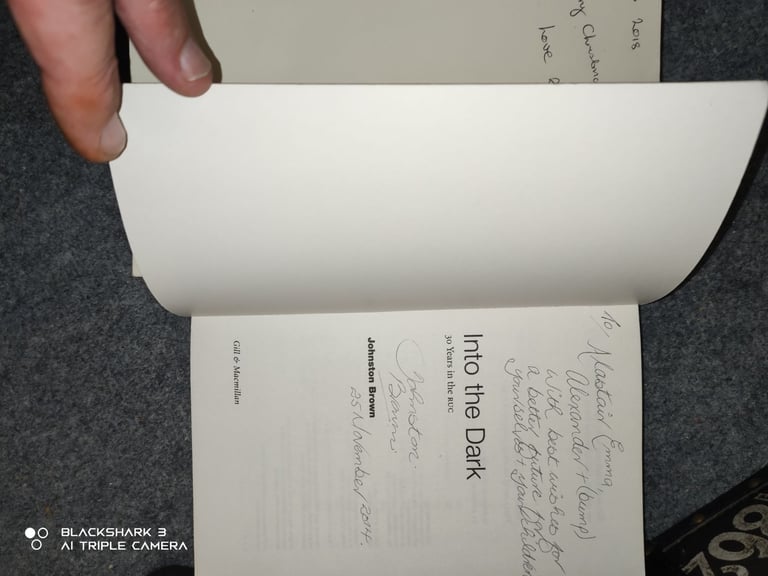 2018
Christma
love
To/ Alastair Emma,
Alexander + (bump)
with best wishes for
a better future for
yourselves + your children
Into the Dark
30 Years in the RUC
Johnston
Brown
Johnston Brown
25 November 2014.
Gill & Macmillan
BLACKSHARK 3
AI TRIPLE CAMERA